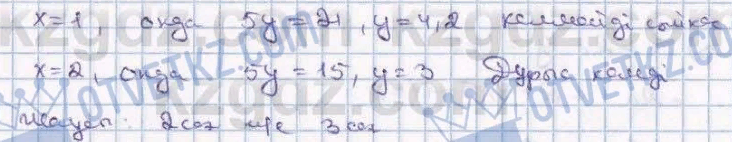 x=1, онда 5y=21, y=4,2 келмейді
x=2, онда 5y=15, y=3 Дұрыс келеді
Жауабы: 2 сағ 3 сағ